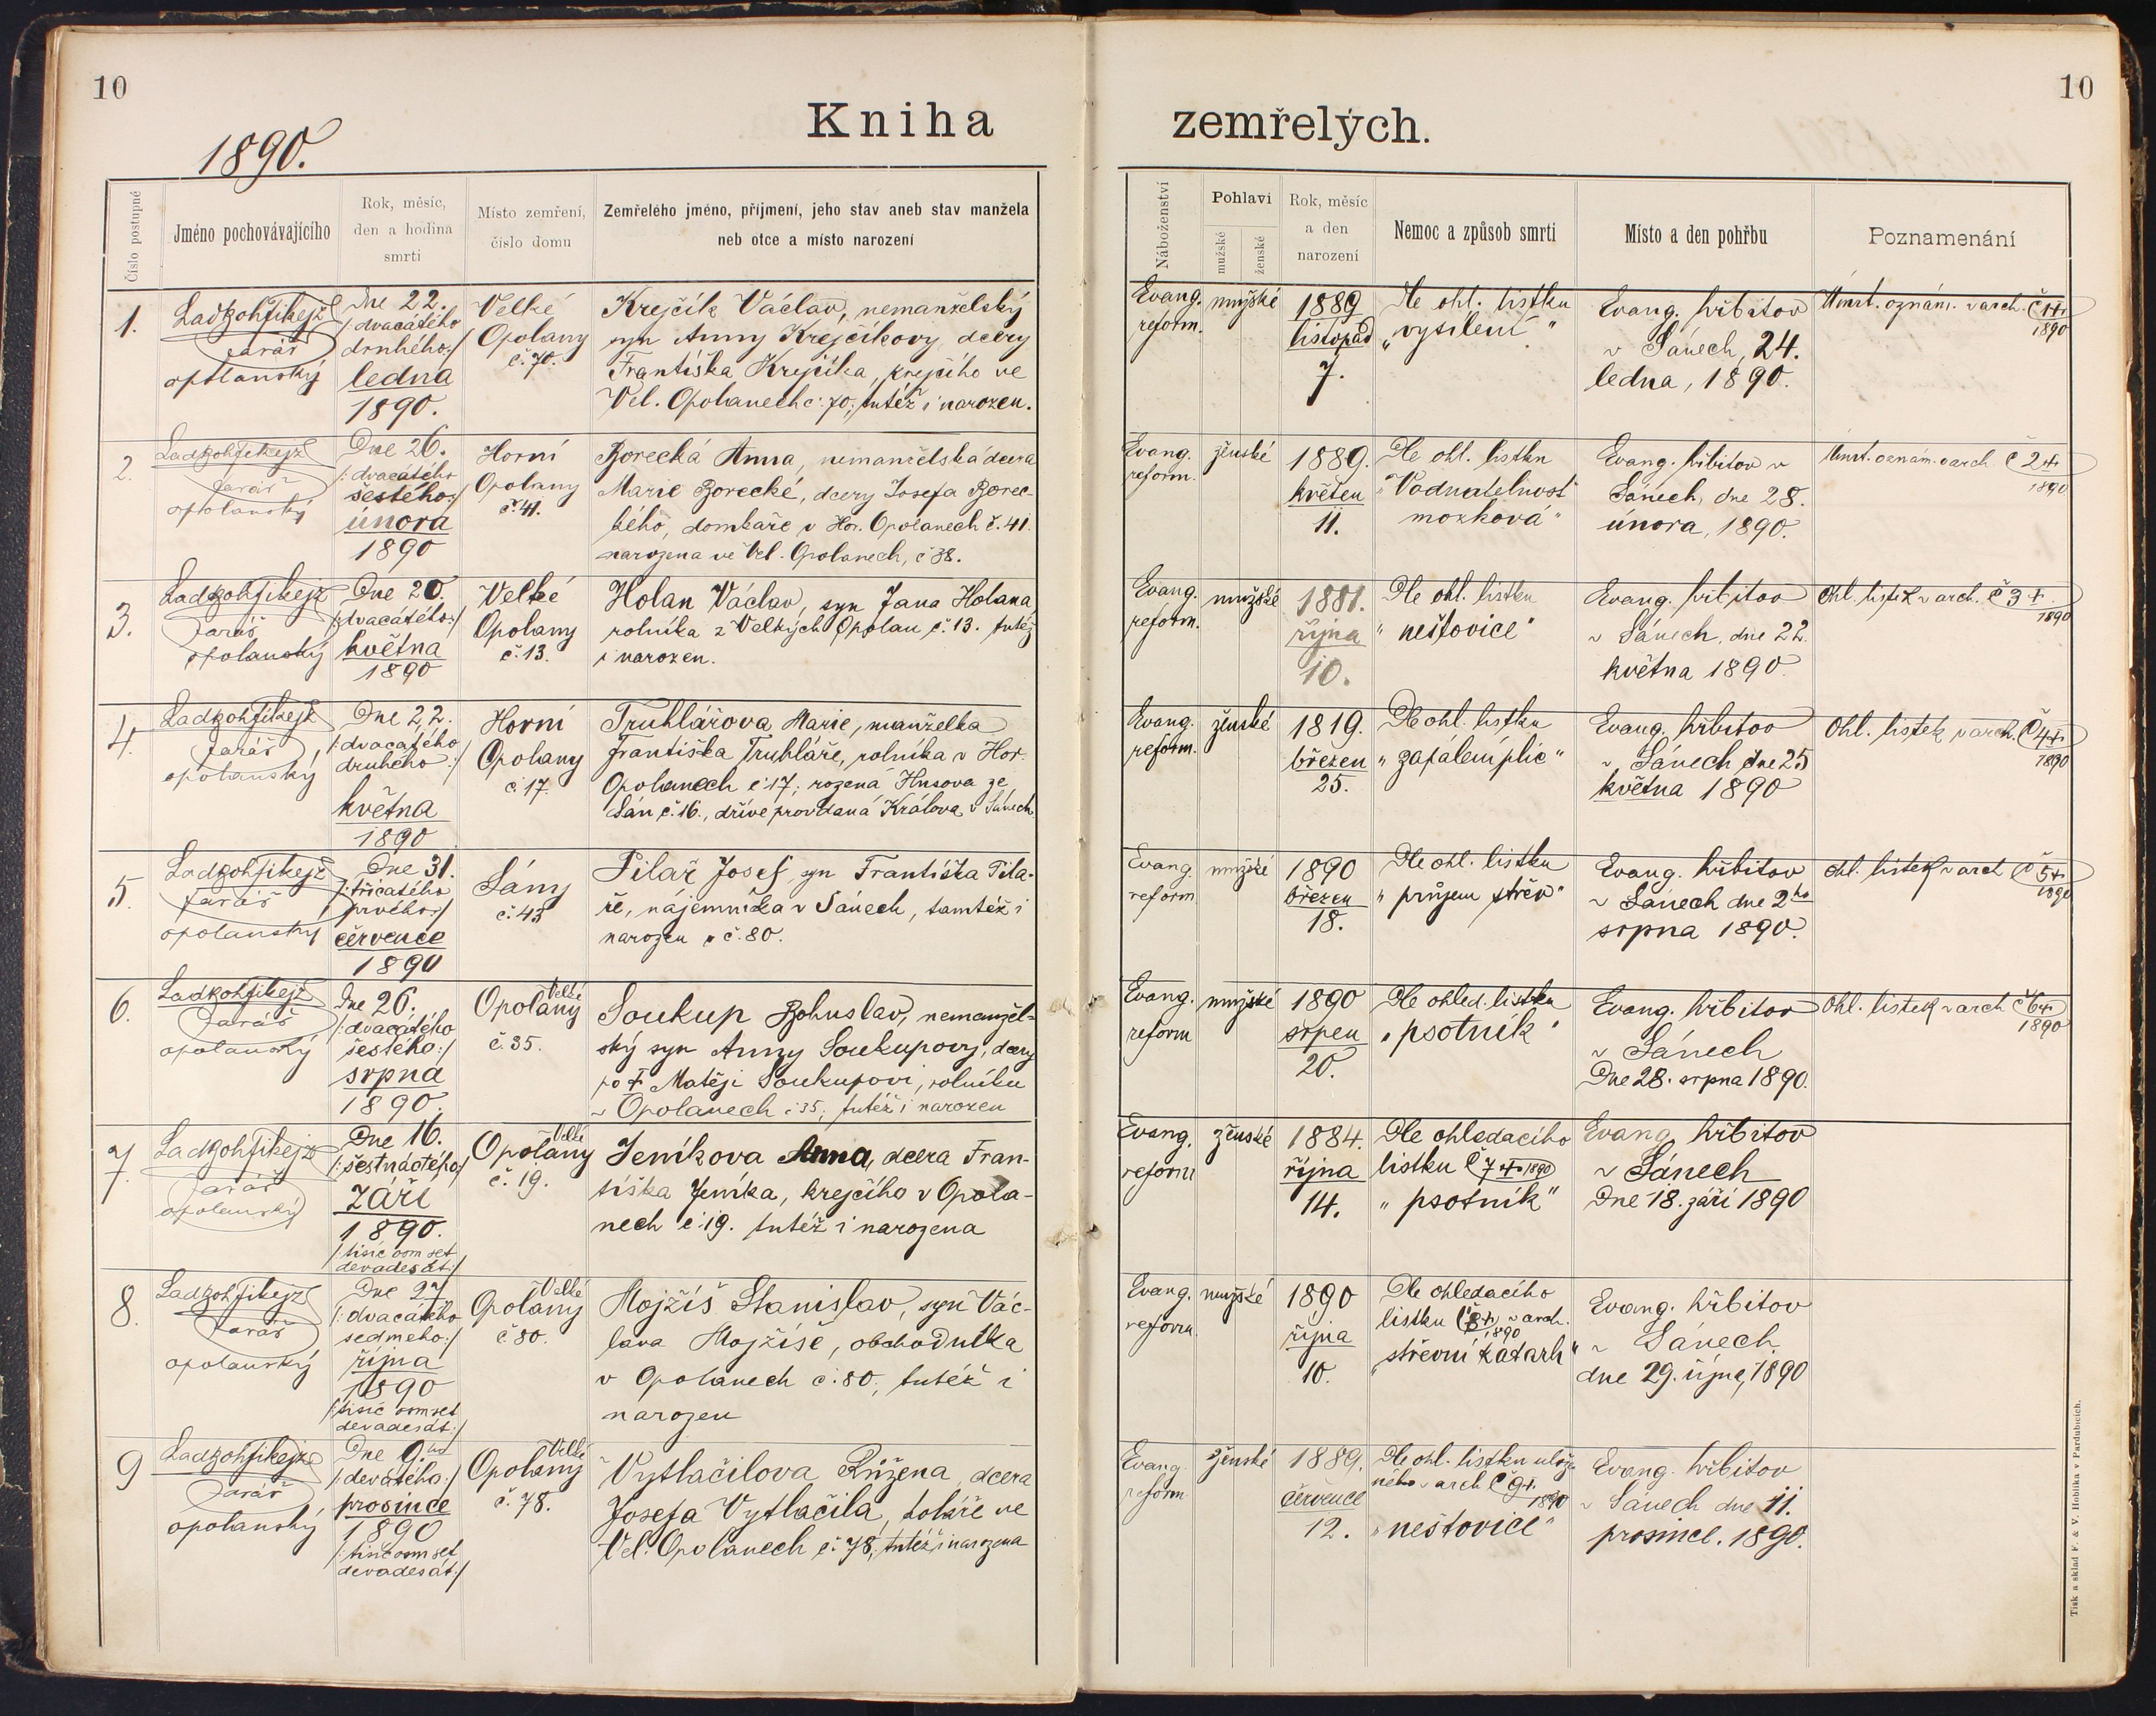 10
10
Kniha
zemřelých.
1890.
Číslo postupné
Jméno pochovávajícího
Rok, měsíc,
den a hodina
smrti
Místo zemření,
číslo domu
Zemřelého jméno, příjmení, jeho stav aneb stav manžela
neb otce a místo narození
Náboženství
Pohlaví
mužské
ženské
Rok, měsíc
a den
narození
Nemoc a způsob smrti
Místo a den pohřbu
Poznamenání
1.
farář
opolanský
Dne 22.
/:dvacátého
druhého:/
ledna
1890.
Velké
Opolany
č. 70.
Krejčík Václav, nemanželský
syn Anny Krejčíkovy dcery
Františka Krejčíka, krejčího ve
Vel. Opolanech č. 70; tutéž i narozen.
Evang.
reform.
mužské
1889
listopad
7.
Dle ohl. lístku
„vysílení"
Evang. hřbitov
v Sánech, 24.
ledna, 1890.
Úmrt. oznám. v arch. č 1+
1890
2.
farář
opolanský
Dne 26.
/:dvacátého
šestého:/
února
1890
Horní
Opolany
č. 41.
Borecká Anna, nemanželská dcera
Marie Borecké, dcery Josefa Borec-
kého, domkáře v Hor. Opolanech č. 41.
narozena ve Vel. Opolanech, č 38.
Evang.
reform.
ženské
1889.
květen
11.
Dle ohl. lístku
„Vodnatelnost
mozková"
Evang. hřbitov v
Sánech, dne 28.
února, 1890.
Úmrt. oznám. v arch č 2+
1890
3.
farář
opolanský
Dne 20.
/:dvacátého:/
května
1890
Velké
Opolany
č. 13.
Holan Václav, syn Jana Holana,
rolníka z Velkých Opolan č. 13. tutéž
i narozen.
Evang.
reform.
mužské
1881.
října
10.
Dle ohl. lístku
„neštovice"
Evang. hřbitov
v Sánech, dne 22.
května 1890
Ohl. lístek v arch. č 3+
1890
4.
farář
opolanský
Dne 22.
/:dvacátého
druhého:/
května
1890
Horní
Opolany
č. 17.
Truhlářova Marie, manželka
Františka Truhláře, rolníka v Hor.
Opolanech č. 17; rozená Husova ze
Sán č. 16., dříve provdaná Králova v Sánech.
Evang.
reform.
ženské
1819.
březen
25.
Dle ohl. lístku
„zapálení plic"
Evang. hřbitov
v Sánech dne 25
května 1890
Ohl. lístek v arch. č 4+
1890
5.
farář
opolanský
Dne 31.
/:třicátého
prvého:/
července
1890
Sány
č. 45
Pilař Josef, syn Františka Pila-
ře, nájemníka v Sánech, tamtéž i
narozen v č. 80.
Evang.
reform.
mužské
1890
březen
18.
Dle ohl. lístku
„průjem střev"
Evang. hřbitov
v Sánech dne 2ho
srpna 1890.
Ohl. lístek v arch č 5+
1890
6.
farář
opolanský
Dne 26.
/:dvacátého
šestého:/
srpna
1890.
Velké
Opolany
č. 35.
Soukup Bohuslav, nemanžel-
ský syn Anny Soukupovy, dcery
po + Matěji Soukupovi, rolníku
v Opolanech č 35; tutéž i narozen
Evang.
reform
mužské
1890
srpen
20.
Dle ohled. lístku
„psotník"
Evang. hřbitov
v Sánech
Dne 28. srpna 1890.
Ohl. lístek v arch č 6+
1890
7.
farář
opolanský
Dne 16.
/:šestnáctého:/
září
1890.
/:tisíc osm set
devadesát:/
Velké
Opolany
č. 19.
Jeníkova Anna, dcera Fran-
tiška Jeníka, krejčího v Opola-
nech č. 19. tutéž i narozena
Evang.
reform
ženské
1884.
října
14.
Dle ohledacího
lístku č 7+ 1890
„psotník"
Evang. hřbitov
v Sánech
Dne 18. září 1890
8.
farář
opolanský
Dne 27
/:dvacátého
sedmého:/
října
1890
/:tisíc osm set
devadesát:/
Velké
Opolany
č 80.
Mojžíš Stanislav, syn Vác-
lava Mojžíše, obchodníka
v Opolanech č. 80; tutéž i
narozen
Evang.
reform.
mužské
1890
října
10.
Dle ohledacího
lístku č 8+ v arch.
1890
„střevní katarh"
Evang. hřbitov
v Sánech
dne 29. října, 1890
9
farář
opolanský
Dne 9.ho
/:devátého:/
prosince
1890
/:tisíc osm set
devadesát:/
Velké
Opolany
č. 78.
Vytlačilova Růžena, dcera
Josefa Vytlačila, koláře ve
Vel. Opolanech č. 78; tutéž i narozena
Evang.
reform.
ženské
1889.
července
12.
Dle ohl. lístku ulože
ného v arch č 9+
1890
„neštovice"
Evang. hřbitov
v Sánech dne 11.
prosince. 1890.
Tisk a sklad F. & V. Hoblíka v Pardubicích.